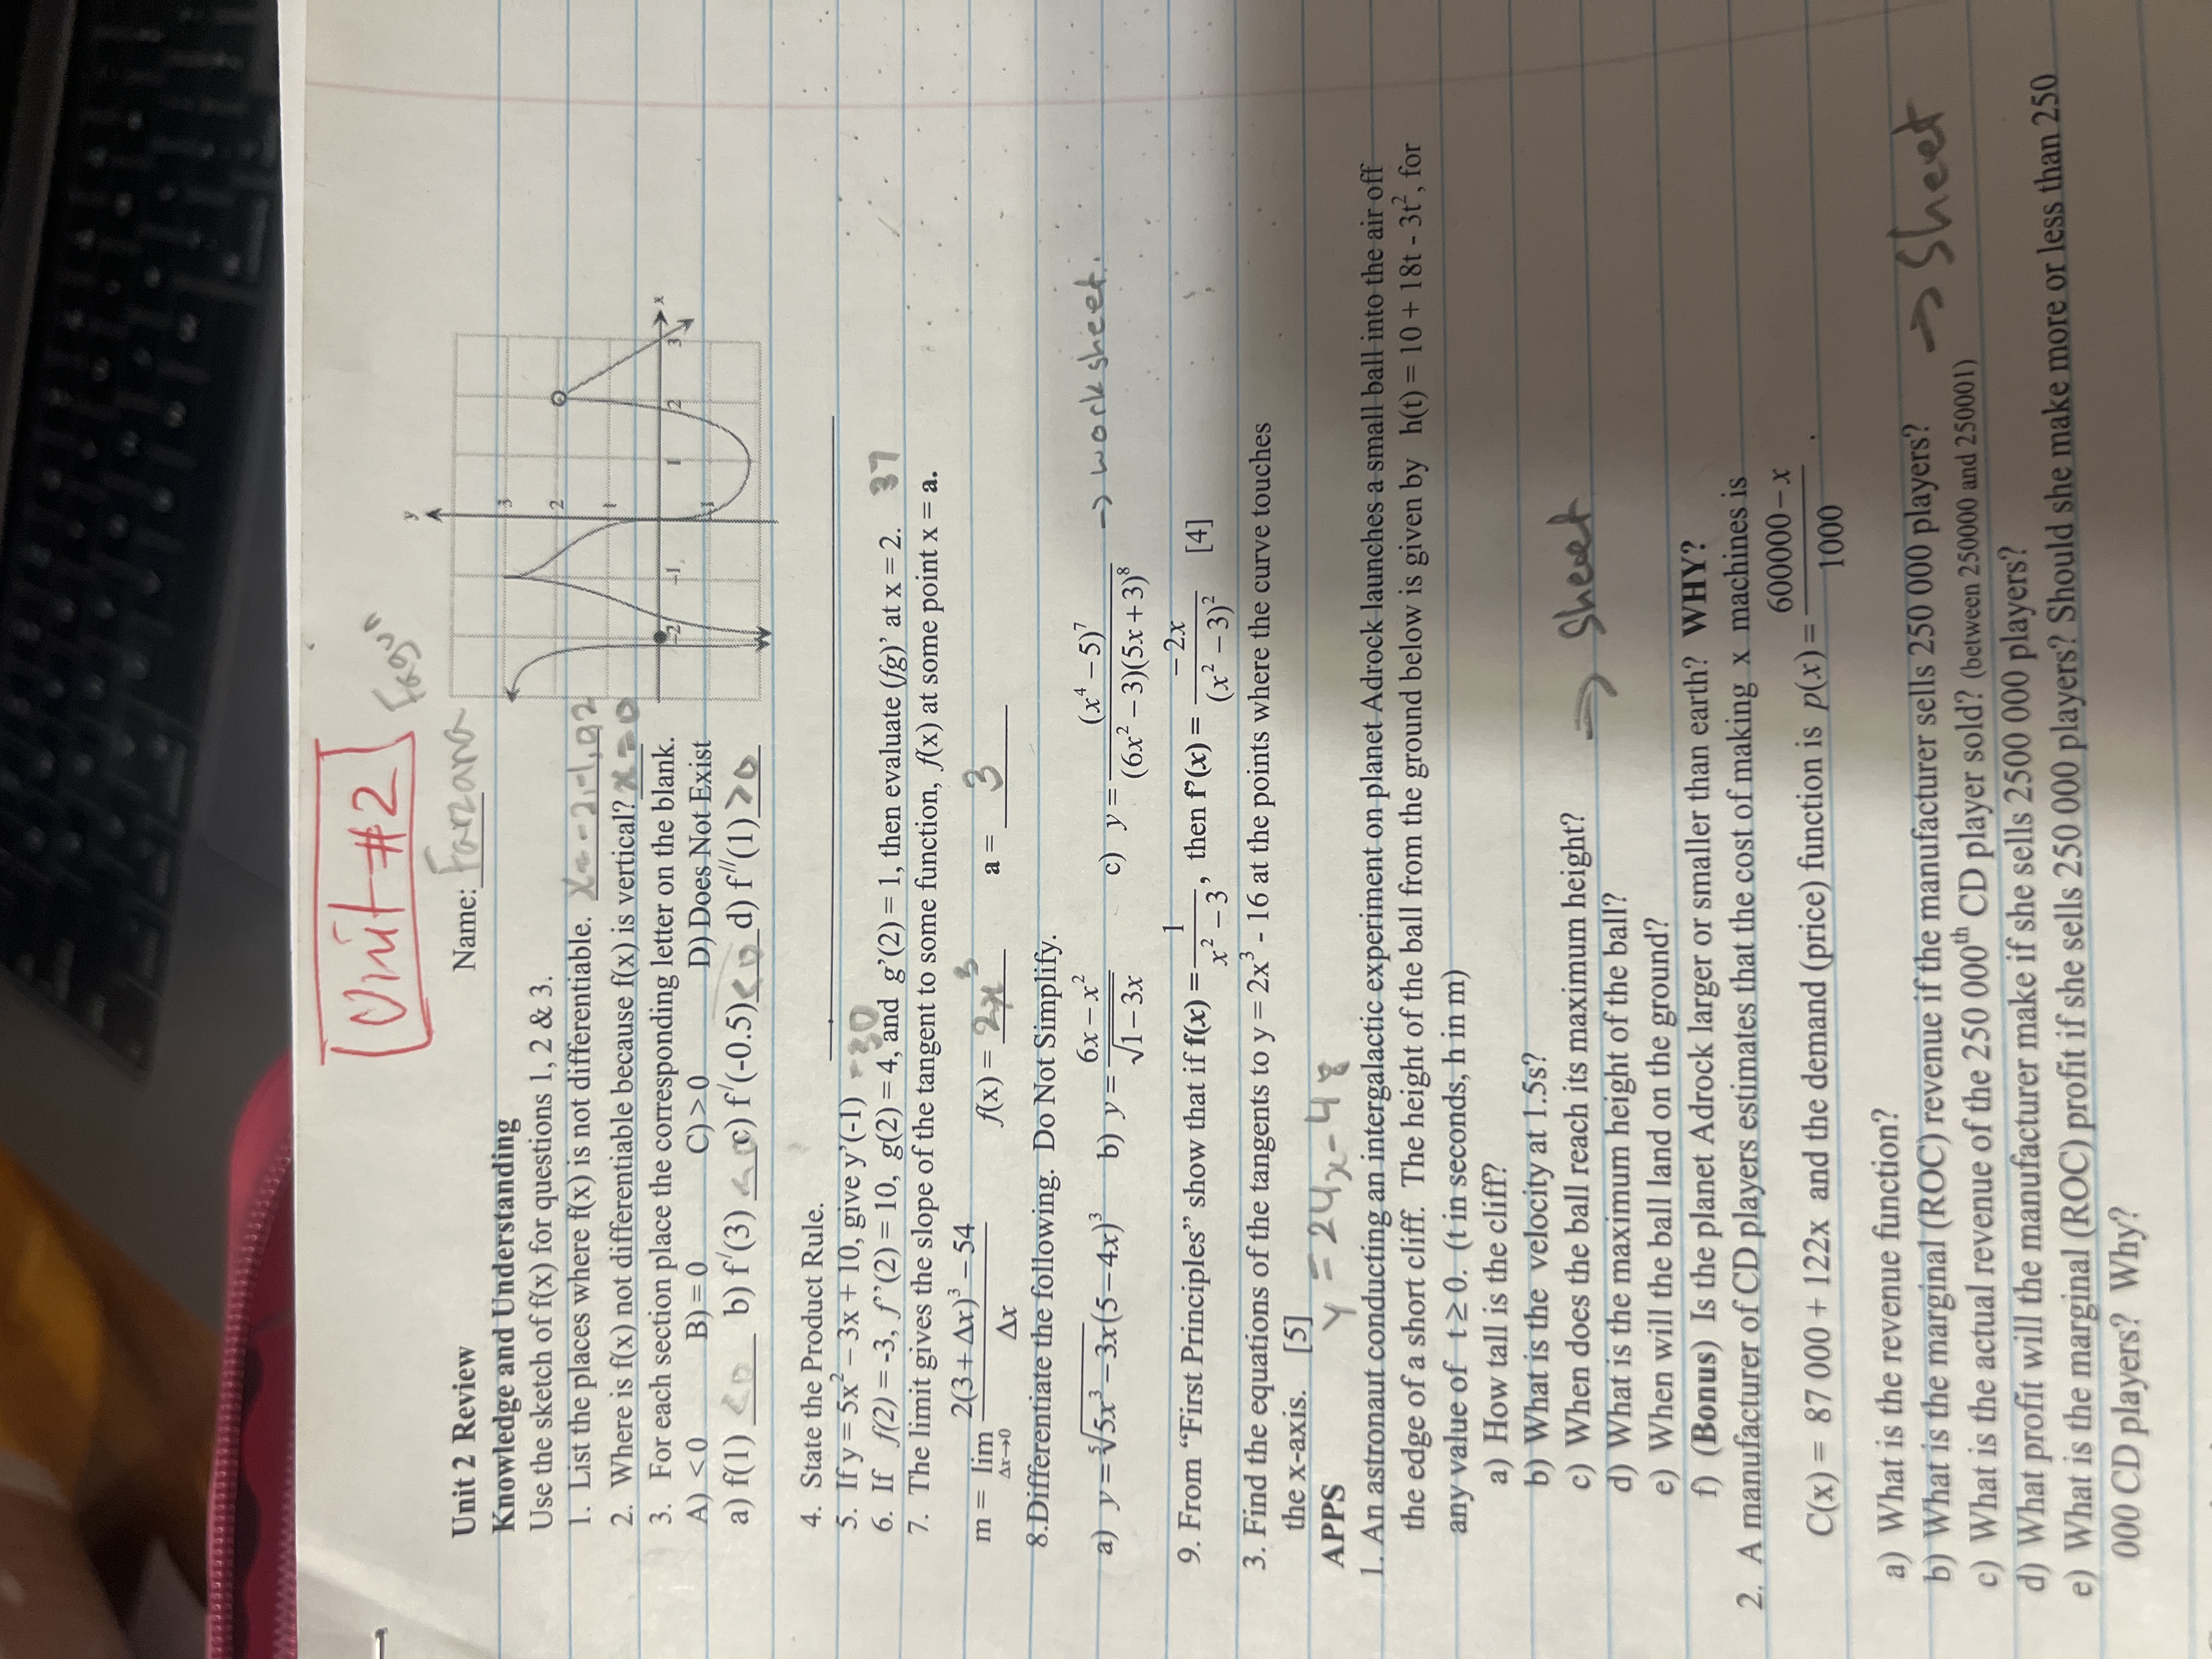 Unit #2
Name: Farzana
Unit 2 Review
Knowledge and Understanding
Use the sketch of f(x) for questions 1, 2 & 3.
1. List the places where f(x) is not differentiable. x=-2,-1,0,2
2. Where is f(x) not differentiable because f(x) is vertical? x=0
3. For each section place the corresponding letter on the blank.
A) < 0 B) = 0 C) > 0 D) Does Not Exist
a) f(1) <0 b) f'(3) <0 c) f'(-0.5) <0 d) f''(1) >0
y
3
2
1
-2 -1 1 2 3 x
4. State the Product Rule.
5. If y = 5x² – 3x + 10, give y'(-1) -30
6. If f(2) = -3, f''(2) = 10, g(2) = 4, and g'(2) = 1, then evaluate (fg)' at x = 2. 37
7. The limit gives the slope of the tangent to some function, f(x) at some point x = a.
m = lim Δx→0 2(3 + Δx)³ – 54 / Δx f(x) = 2x³ a = 3
8.Differentiate the following. Do Not Simplify.
a) y = ⁵√5x³ – 3x(5 – 4x)³ b) y = 6x – x² / √1 – 3x c) y = (x⁴ – 5)⁷ / (6x² – 3)(5x + 3)⁸ → worksheet.
9. From “First Principles” show that if f(x) = 1 / x² – 3, then f’(x) = – 2x / (x² – 3)² [4]
3. Find the equations of the tangents to y = 2x³ - 16 at the points where the curve touches
the x-axis. [5] y = 24x-48
APPS
1. An astronaut conducting an intergalactic experiment on planet Adrock launches a small ball into the air off
the edge of a short cliff. The height of the ball from the ground below is given by h(t) = 10 + 18t - 3t², for
any value of t ≥ 0. (t in seconds, h in m)
a) How tall is the cliff?
b) What is the velocity at 1.5s?
c) When does the ball reach its maximum height? → Sheet
d) What is the maximum height of the ball?
e) When will the ball land on the ground?
f) (Bonus) Is the planet Adrock larger or smaller than earth? WHY?
2. A manufacturer of CD players estimates that the cost of making x machines is
C(x) = 87 000 + 122x and the demand (price) function is p(x) = 600000 – x / 1000 .
a) What is the revenue function?
b) What is the marginal (ROC) revenue if the manufacturer sells 250 000 players? → Sheet
c) What is the actual revenue of the 250 000th CD player sold? (between 250000 and 250001)
d) What profit will the manufacturer make if she sells 2500 000 players?
e) What is the marginal (ROC) profit if she sells 250 000 players? Should she make more or less than 250
000 CD players? Why?